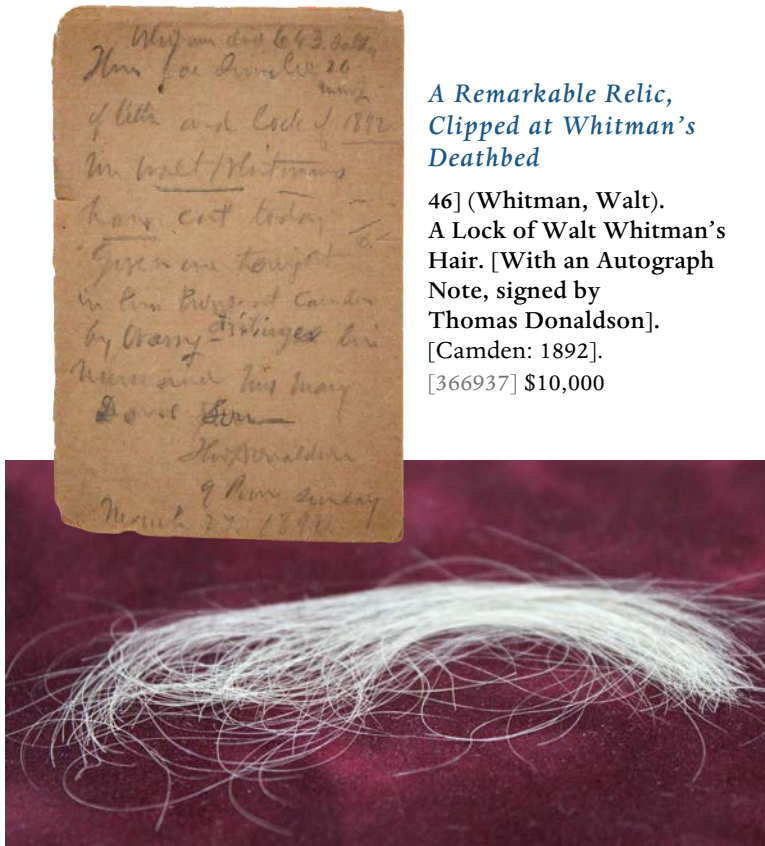 Whitman died 6 43. Satdy
26
March
of and lock of 1892
Mr Walt Whitmans
cut today
Given me tonight
in the House at Camden
by Warry his
Nurse and his Mary
Davis
Thos Donaldson
9 P.m Sunday
March 27. 1892
A Remarkable Relic,
Clipped at Whitman’s
Deathbed
46] (Whitman, Walt).
A Lock of Walt Whitman’s
Hair. [With an Autograph
Note, signed by
Thomas Donaldson].
[Camden: 1892].
[366937] $10,000